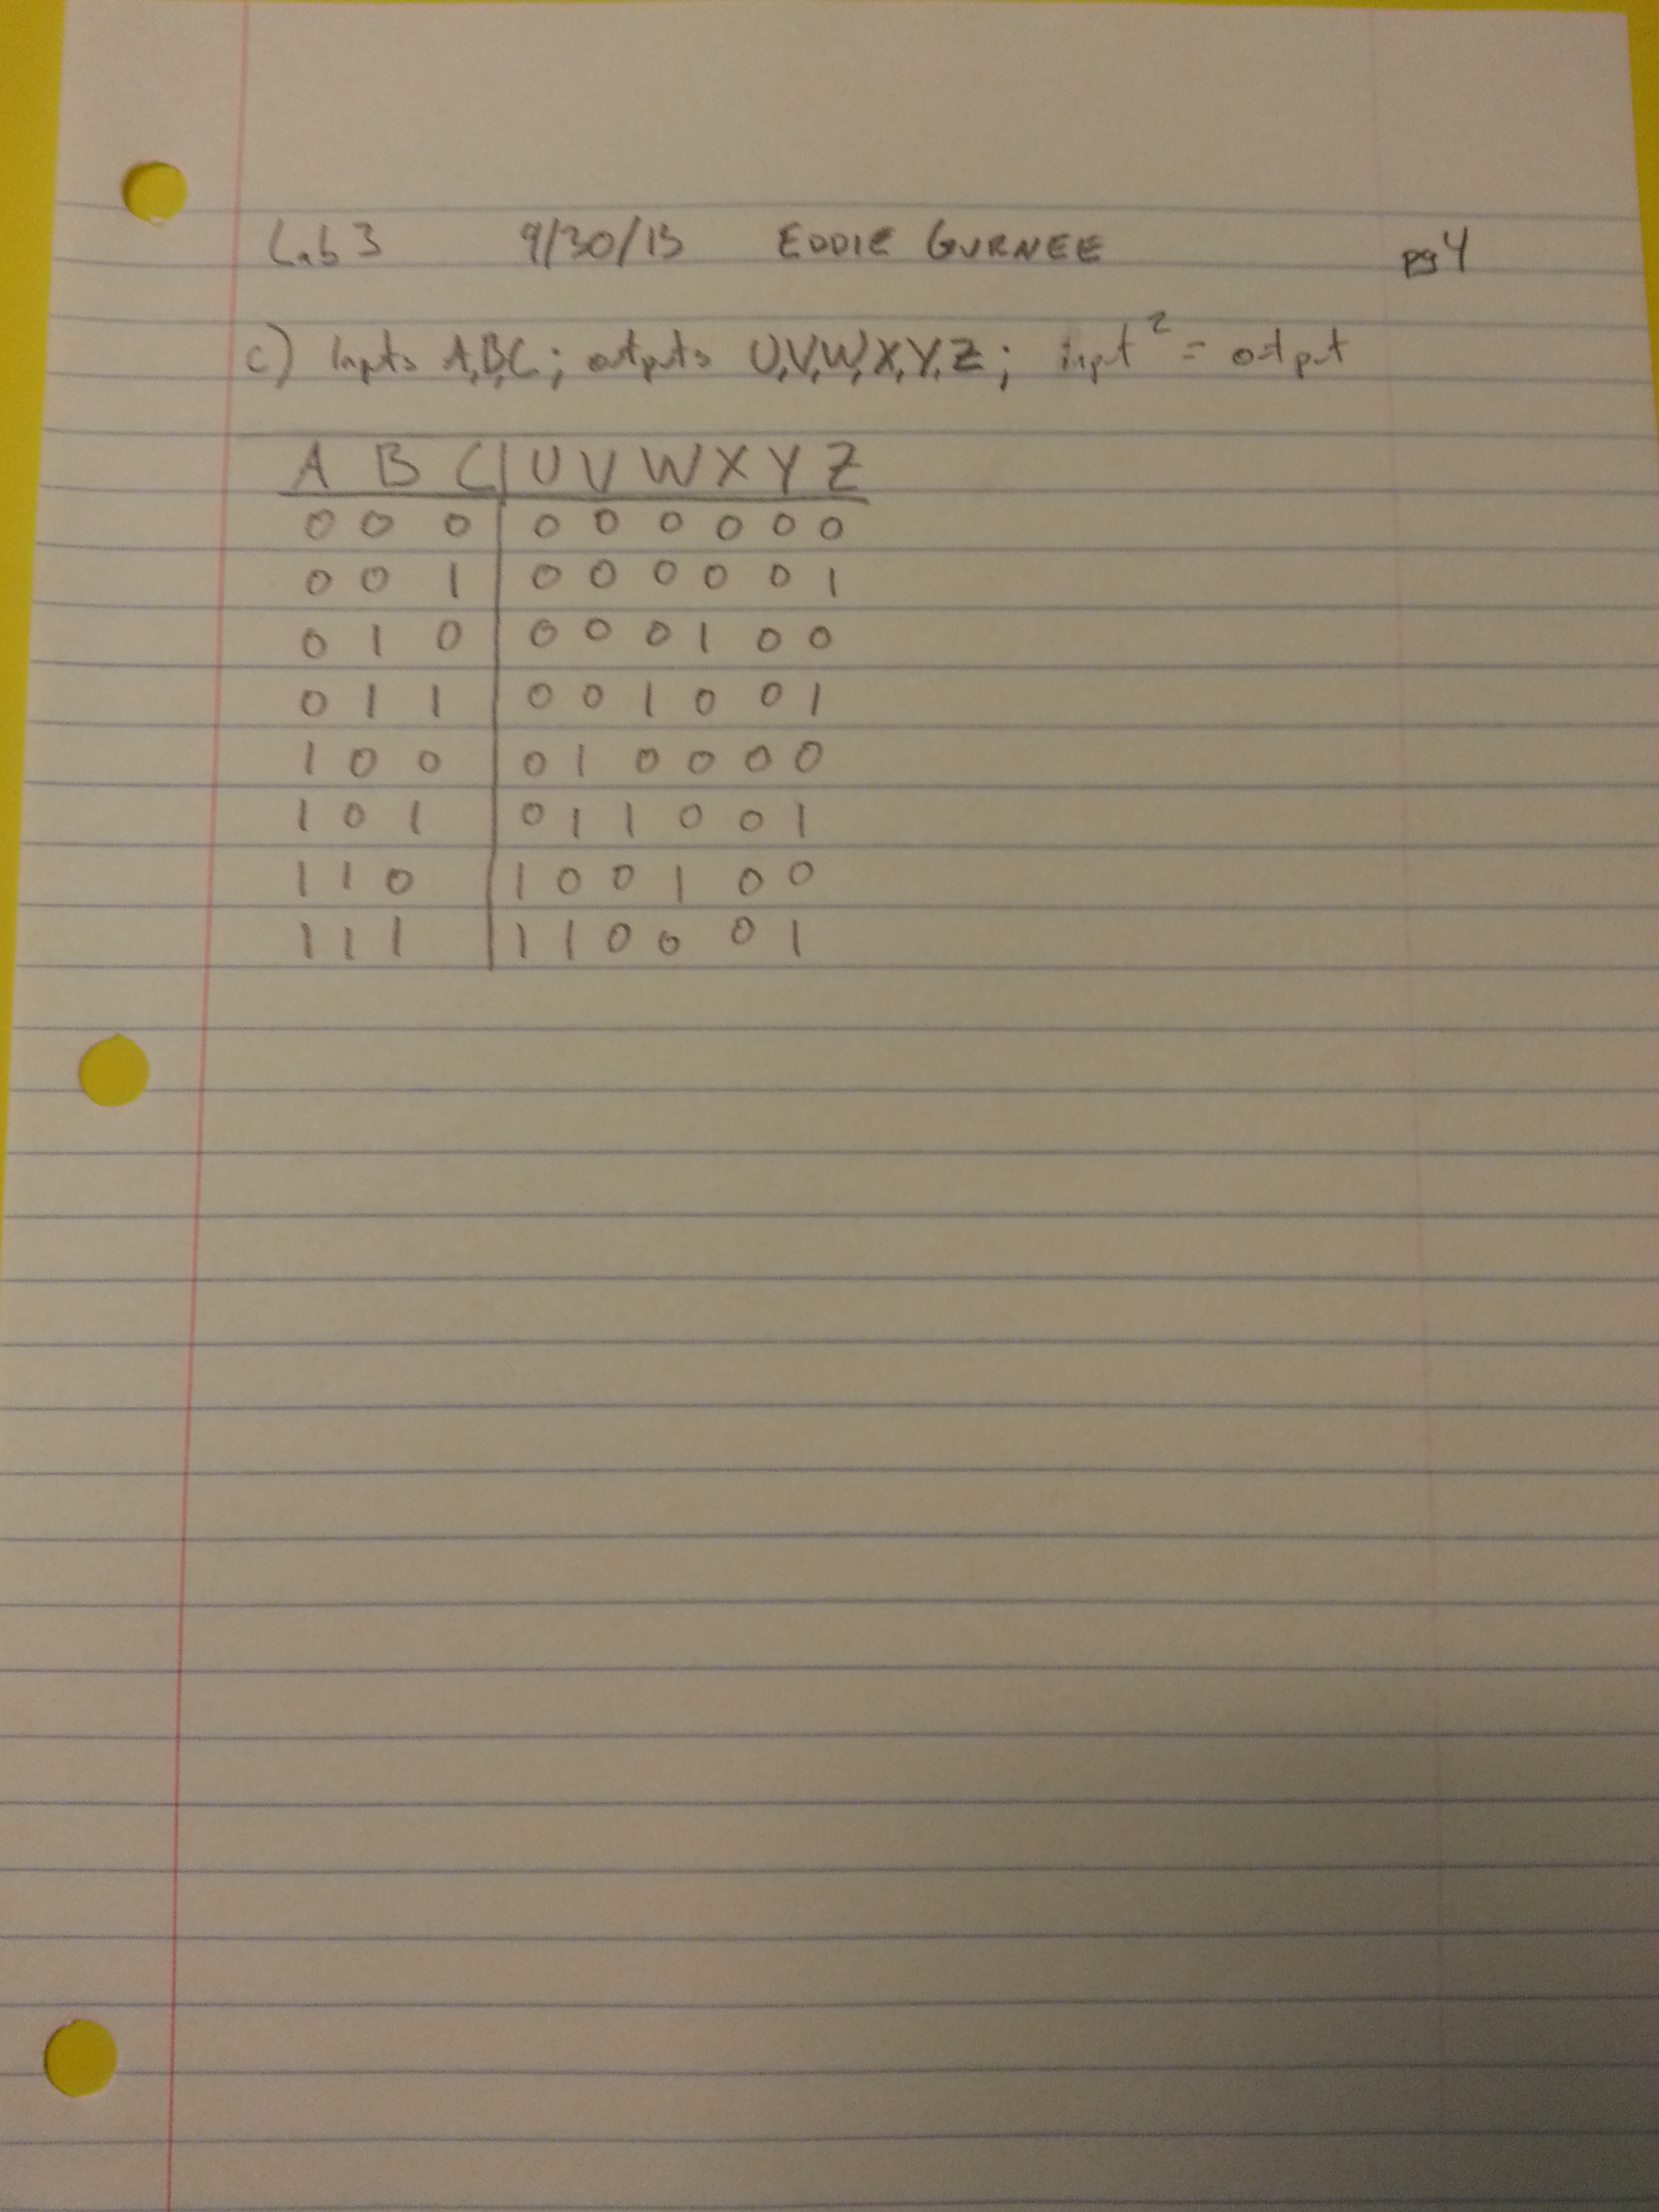 Lab 3 9/30/13 EDDIE GURNEE pg 4
c) Inputs A,B,C; outputs U,V,W,X,Y,Z; input² = output
A B C | U V W X Y Z
0 0 0 | 0 0 0 0 0 0
0 0 1 | 0 0 0 0 0 1
0 1 0 | 0 0 0 1 0 0
0 1 1 | 0 0 1 0 0 1
1 0 0 | 0 1 0 0 0 0
1 0 1 | 0 1 1 0 0 1
1 1 0 | 1 0 0 1 0 0
1 1 1 | 1 1 0 0 0 1